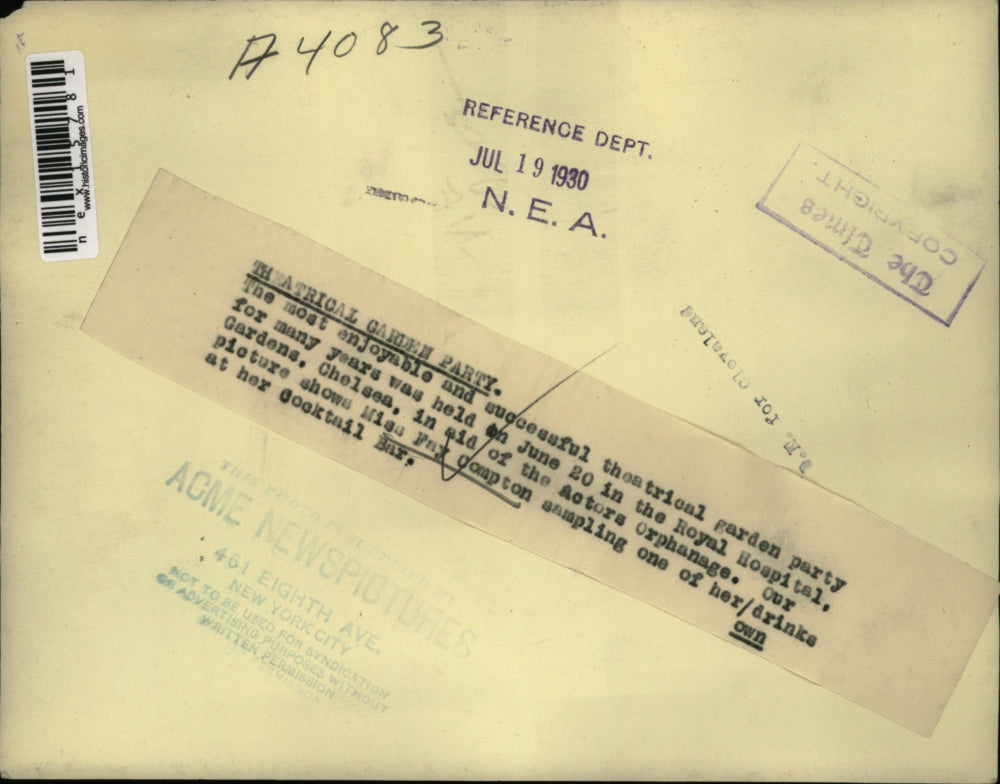 A4083
nex1575781
www.historicimages.com
REFERENCE DEPT.
JUL 19 1930
N. E. A.
The Times
COPYRIGHT
THEATRICAL GARDEN PARTY.
The most enjoyable and successful theatrical garden party
for many years was held on June 20 in the Royal Hospital,
Gardens, Chelsea, in aid of the Actors Orphanage. Our
picture shows Miss Fay Compton sampling one of her/drinks
own
at her Cocktail Bar.
for Cleveland
ACME NEWSPICTURES
461 EIGHTH AVE.
NEW YORK CITY
NOT TO BE USED FOR SYNDICATION
OR ADVERTISING PURPOSES WITHOUT
WRITTEN PERMISSION